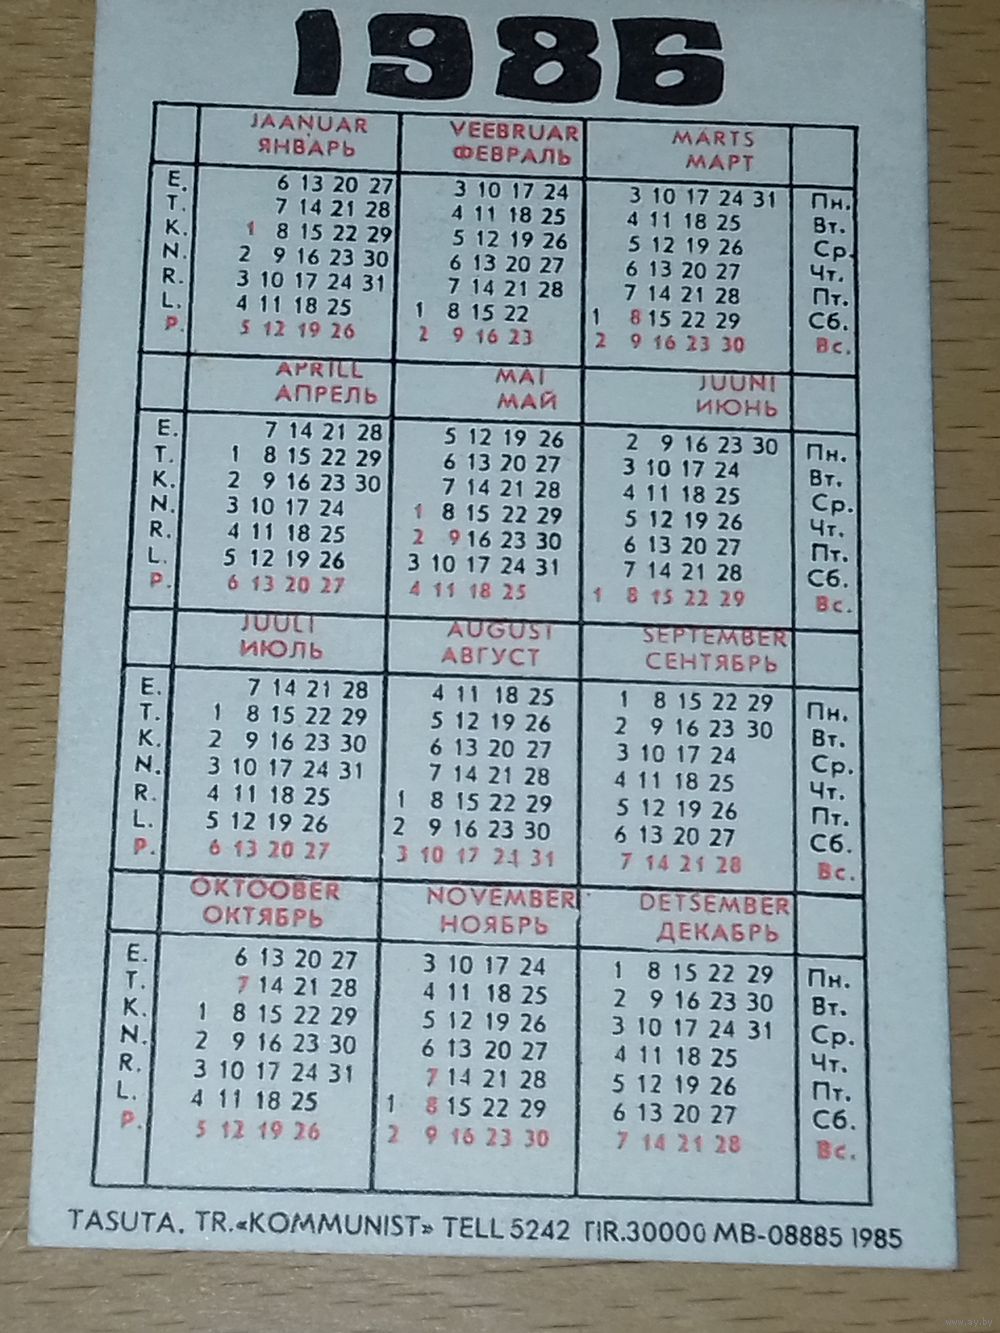 1986
JAANUAR VEEBRUAR MÄRTS
ЯНВАРЬ ФЕВРАЛЬ МАРТ
E. 6 13 20 27 3 10 17 24 3 10 17 24 31 Пн.
T. 7 14 21 28 4 11 18 25 4 11 18 25 Вт.
K. 1 8 15 22 29 5 12 19 26 5 12 19 26 Ср.
N. 2 9 16 23 30 6 13 20 27 6 13 20 27 Чт.
R. 3 10 17 24 31 7 14 21 28 7 14 21 28 Пт.
L. 4 11 18 25 1 8 15 22 1 8 15 22 29 Сб.
P. 5 12 19 26 2 9 16 23 2 9 16 23 30 Вс.
APRILL MAI JUUNI
АПРЕЛЬ МАЙ ИЮНЬ
E. 7 14 21 28 5 12 19 26 2 9 16 23 30 Пн.
T. 1 8 15 22 29 6 13 20 27 3 10 17 24 Вт.
K. 2 9 16 23 30 7 14 21 28 4 11 18 25 Ср.
N. 3 10 17 24 1 8 15 22 29 5 12 19 26 Чт.
R. 4 11 18 25 2 9 16 23 30 6 13 20 27 Пт.
L. 5 12 19 26 3 10 17 24 31 7 14 21 28 Сб.
P. 6 13 20 27 4 11 18 25 1 8 15 22 29 Вс.
JUULI AUGUST SEPTEMBER
ИЮЛЬ АВГУСТ СЕНТЯБРЬ
E. 7 14 21 28 4 11 18 25 1 8 15 22 29 Пн.
T. 1 8 15 22 29 5 12 19 26 2 9 16 23 30 Вт.
K. 2 9 16 23 30 6 13 20 27 3 10 17 24 Ср.
N. 3 10 17 24 31 7 14 21 28 4 11 18 25 Чт.
R. 4 11 18 25 1 8 15 22 29 5 12 19 26 Пт.
L. 5 12 19 26 2 9 16 23 30 6 13 20 27 Сб.
P. 6 13 20 27 3 10 17 24 31 7 14 21 28 Вс.
OKTOOBER NOVEMBER DETSEMBER
ОКТЯБРЬ НОЯБРЬ ДЕКАБРЬ
E. 6 13 20 27 3 10 17 24 1 8 15 22 29 Пн.
T. 7 14 21 28 4 11 18 25 2 9 16 23 30 Вт.
K. 1 8 15 22 29 5 12 19 26 3 10 17 24 31 Ср.
N. 2 9 16 23 30 6 13 20 27 4 11 18 25 Чт.
R. 3 10 17 24 31 7 14 21 28 5 12 19 26 Пт.
L. 4 11 18 25 1 8 15 22 29 6 13 20 27 Сб.
P. 5 12 19 26 2 9 16 23 30 7 14 21 28 Вс.
TASUTA. TR.«KOMMUNIST» TELL 5242 TIR.30000 MB-08885 1985
www.ay.by